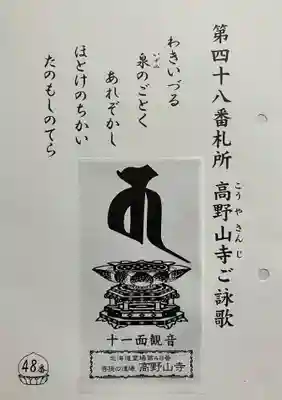 第四十八番札所 高野山寺ご詠歌
こうやさんじ
わきいづる
泉のごとく
いずみ
あれぞかし
ほとけのちかい
たのもしのてら
十一面観音
北海道霊場第48番
高野山寺
48番